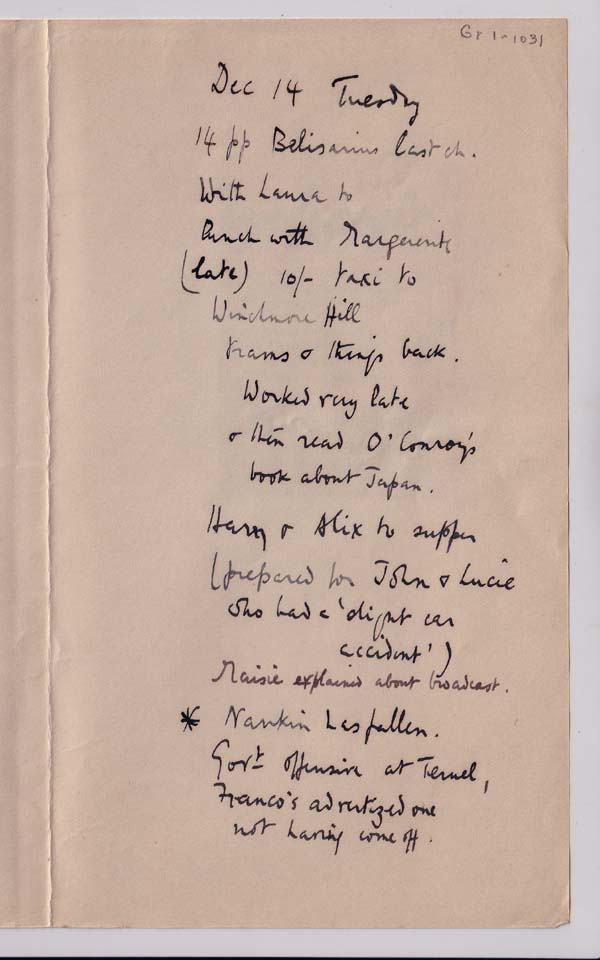 Gr 1-1031
Dec 14 Tuesday
14 pp Belisarius last ch.
With Laura to
lunch with Marguerite
(late) 10/- taxi to
Winchmore Hill
trams & things back.
Worked very late
& then read O'Conroy's
book about Japan.
Harry & Alix to supper
(prepared for John & Lucie
who had a 'slight car
accident')
Maisie explained about broadcast.
* Nankin has fallen.
Govt offensive at Teruel,
Franco's advertized one
not having come off.